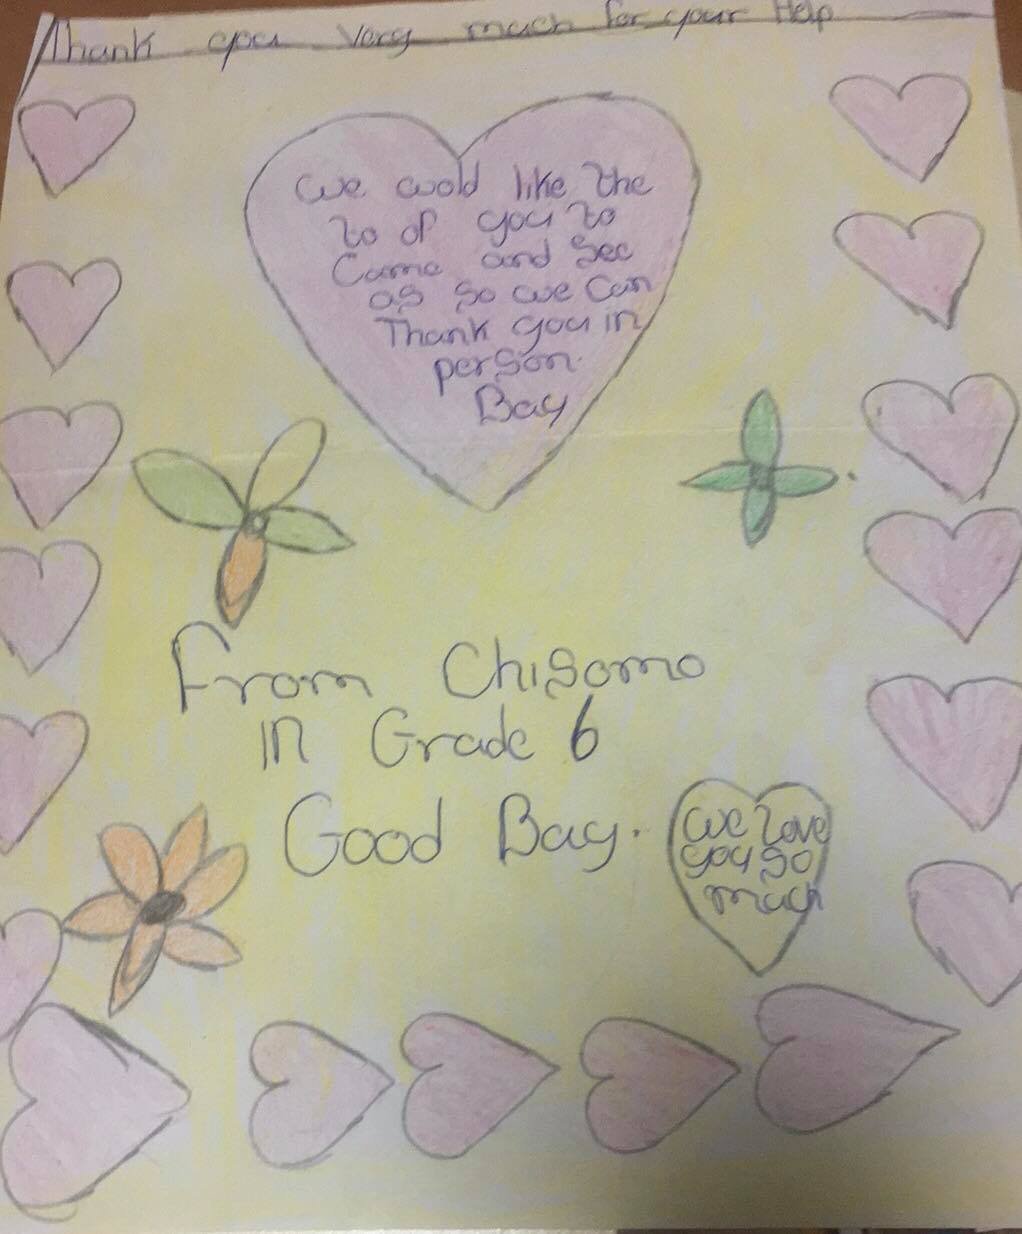 Thank you Very much for your Help
We wold like the
to of you to
Came and See
as so we Can
Thank you in
person.
Bay
From Chisomo
in Grade 6
Good Bay.
We love
you so
much